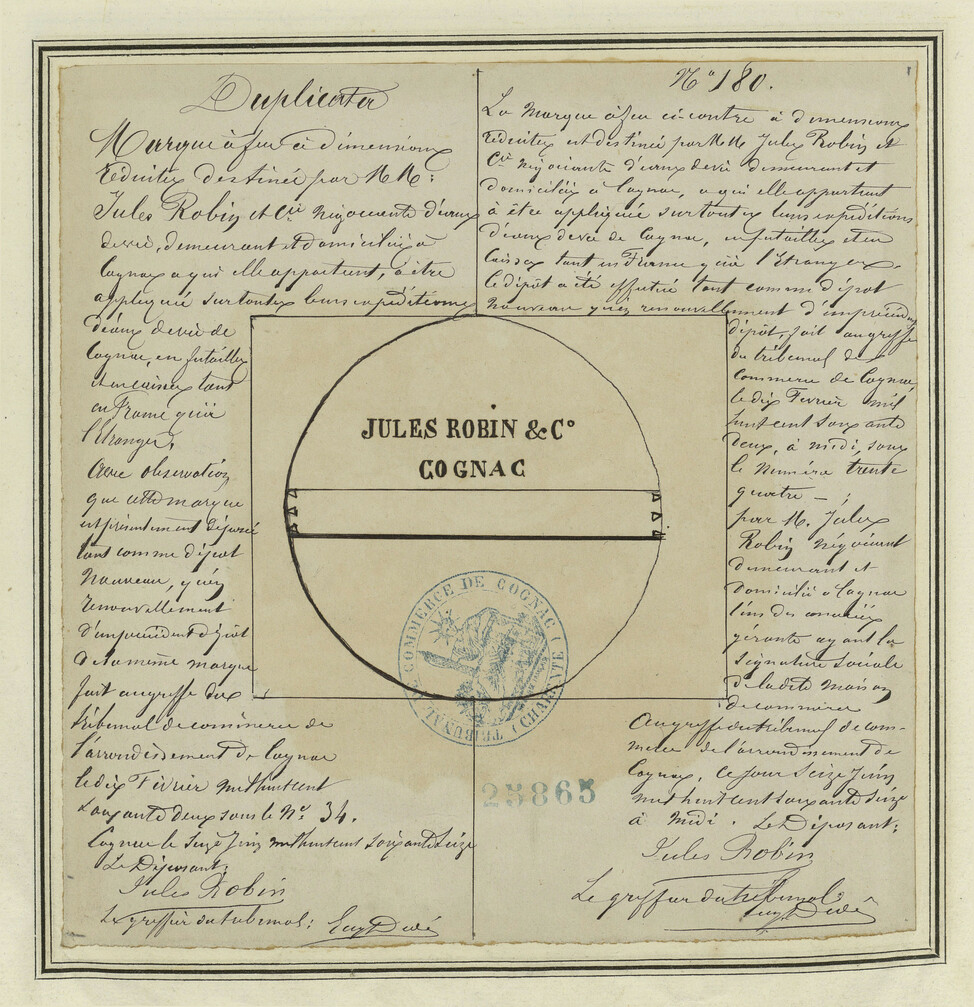 Duplicata
Marque à feu à dimensions
réduites destinée par MM:
Jules Robin et Cie Négociants d'eaux
de vie, demeurant et domiciliés à
Cognac a qui elle appartient, à être
appliquée sur toutes leurs expéditions
d'eaux de vie de
Cognac, en futailles
et en caisses tant
en France qu'à
l'Etranger,
Avec observation
que cette marque
est présentement déposée
tant comme dépôt
Nouveau, qu'en
renouvellement
d'un précédent dépôt
de la même marque
fait au greffe du
tribunal de commerce de
l'arrondissement de Cognac
le dix Février mil huit cent
soixante deux sous le No. 34.
Cognac le seize Juin mil huit cent soixante seize
Le Déposant;
Jules Robin
Le greffier du tribunal:
No 180.
La Marque à feu ci-contre à dimensions
réduites est destinée par MM. Jules Robin et
Cie Négociants d'eaux de vie demeurant et
domiciliés à Cognac, a qui elle appartient
à être appliquée sur toutes leurs expéditions
d'eaux de vie de Cognac, en futailles et en
caisses tant en France qu'à l'Etranger.
le dépôt a été effectué tant comme dépôt
nouveau qu'en renouvellement d'un précédent
dépôt, fait au greffe
du tribunal de
commerce de Cognac,
le dix Février mil
huit cent soixante
deux, à midi, sous
le Numéro trente
quatre - ;
par M. Jules
Robin Négociant
demeurant et
domicilié à Cognac
l'un des associés
gérants ayant la
signature sociale
de la dite maison
de commerce
Au greffe du tribunal de com-
merce de l'arrondissement de
Cognac, ce jour seize Juin
mil huit cent soixante seize
à midi. Le Déposant:
Jules Robin
Le greffier du tribunal
JULES ROBIN & Co
COGNAC
TRIBUNAL DE COMMERCE DE COGNAC (CHARENTE)
25865